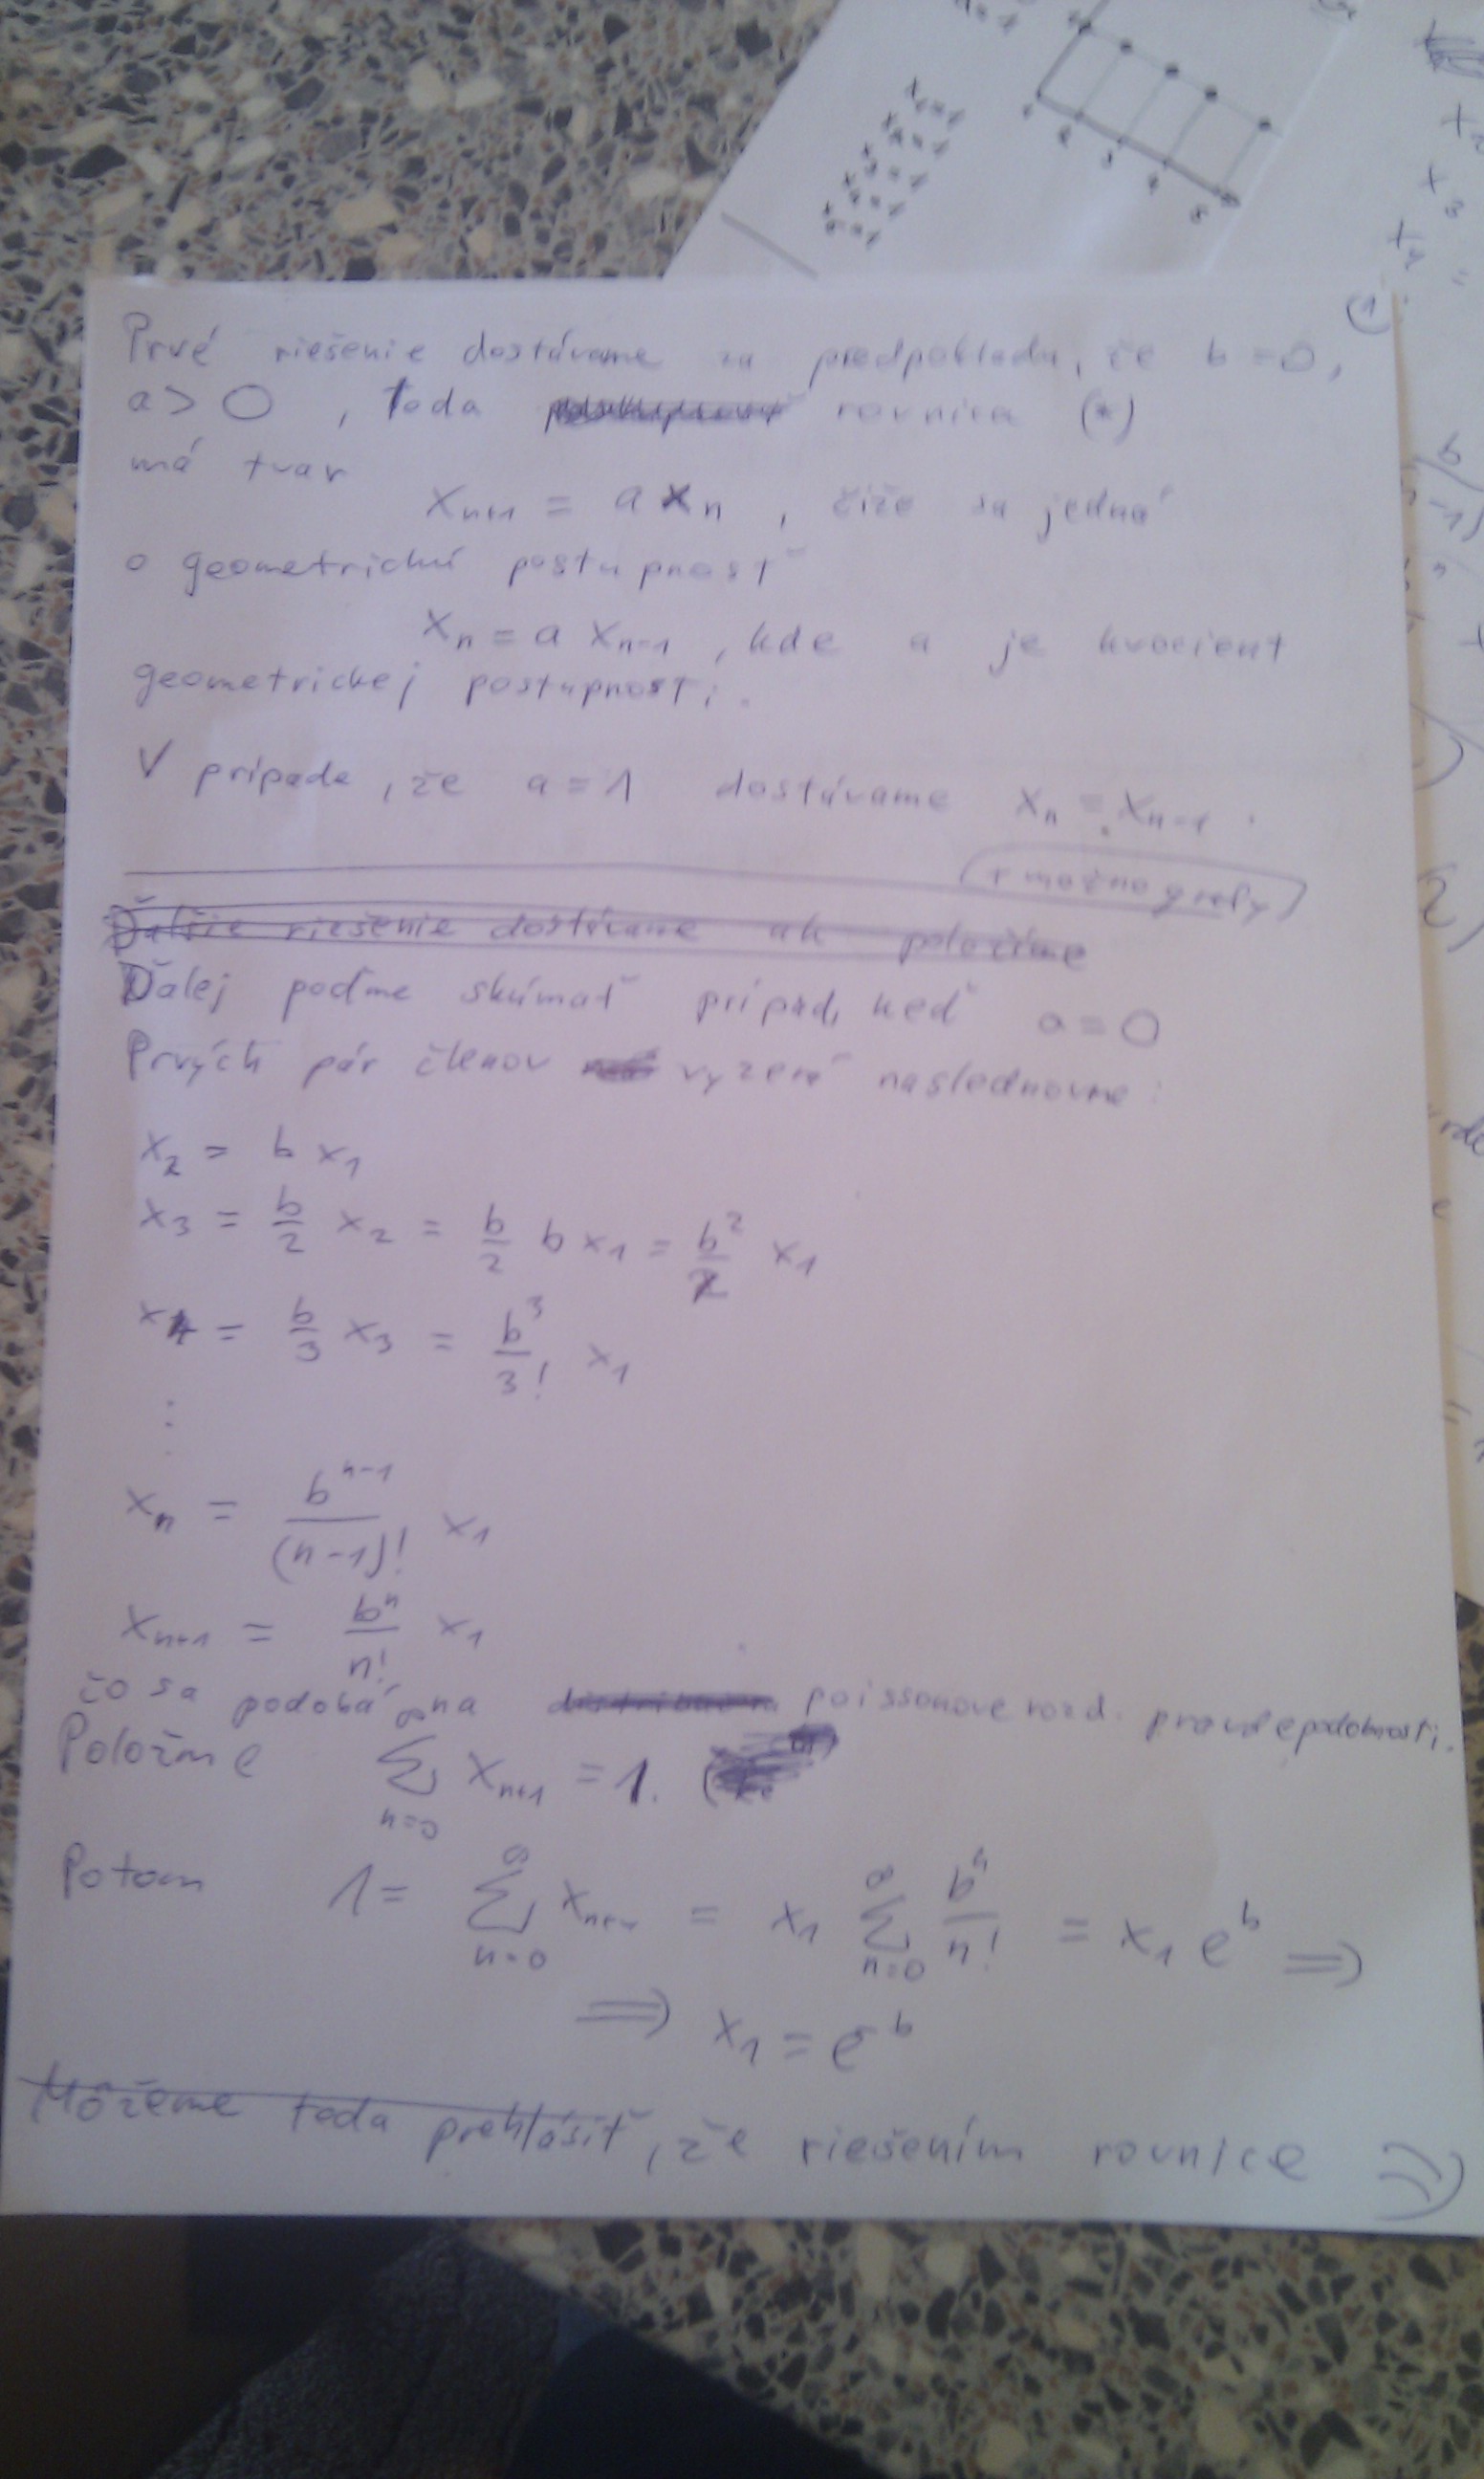 x₁=1
x₂=1
x₃=1
x₄=1
x₅=1
1 2 3 4 5
(1)
Prvé riešenie dostávame za predpokladu, že b = 0,
a > 0 , teda rovnica (*)
má tvar
xₙ₊₁ = a xₙ , čiže sa jedná
o geometrickú postupnosť
xₙ = a xₙ₋₁ , kde a je kvocient
geometrickej postupnosti.
V prípade, že a = 1 dostávame xₙ = xₙ₋₁ .
+ možno grafy
Ďalšie riešenie dostávame ak položíme
Ďalej poďme skúmať prípad, keď a = 0
Prvých pár členov vyzerá naslednovne :
x₂ = b x₁
x₃ = b/2 x₂ = b/2 b x₁ = b²/2 x₁
x₄ = b/3 x₃ = b³/3! x₁
⋮
xₙ = bⁿ⁻¹/(n-1)! x₁
xₙ₊₁ = bⁿ/n! x₁
čo sa podobá na poissonove rozd. pravdepodobnosti.
Položme ∑ₙ₌₀ xₙ₊₁ = 1.
Potom 1 = ∑ₙ₌₀^∞ xₙ₊₁ = x₁ ∑ₙ₌₀^∞ bⁿ/n! = x₁ eᵇ ⟹
⟹ x₁ = e⁻ᵇ
Môžeme teda prehlásiť, že riešením rovnice